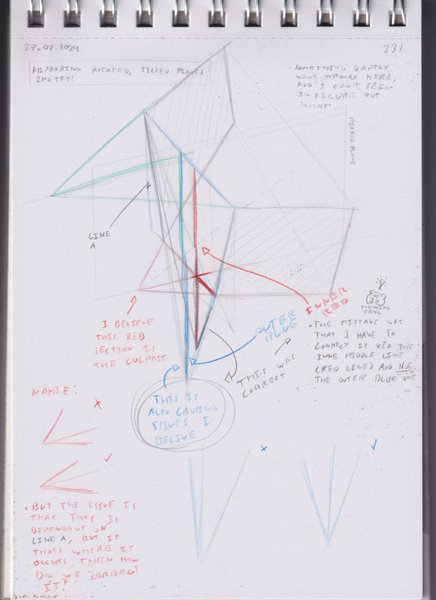 27-07-2024
231
MIRRORING ROTATED, TILTED PLANES
2ND TRY!
• SOMETHING DEEPLY
WENT WRONG HERE,
AND I CAN'T SEEM
TO FIGURE OUT
MIRROR PLANE
LINE
A
I BELIEVE
THIS RED
SECTION IS
THE CULPRIT
OUTER
BLUE
INNER
RED
THINKING
FROG
• THE MISTAKE WAS
THAT I HAVE TO
CONNECT IT VIA THE
INNER MIDDLE LINE
(RED LINE) AND NOT
THE OUTER BLUE ONE
THIS WAS
CORRECT
THIS IS
ALSO CAUSING
ISSUES I
BELIEVE
MAYBE:
• BUT THE ISSUE IS
THAT THIS IS
DEPENDANT ON
LINE A, BUT IF
THAT'S WHERE IT
OCCURS, THEN HOW
DO WE CORRECT
IT?